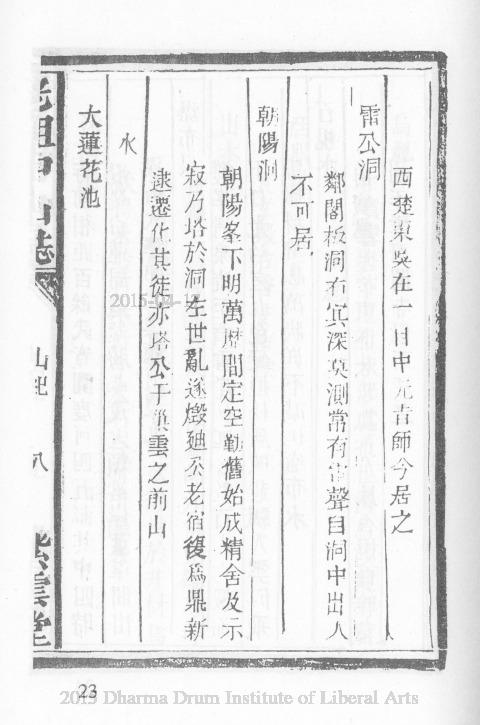 西楚東吳在一目中元吉師今居之
雷公洞
鄰閣板洞右其深莫測常有雷聲自洞中出人
不可居
朝陽洞
朝陽峯下明萬曆間定空勒舊始成精舍及示
寂乃塔於洞左世亂遂燬廸公老宿復爲鼎新
逮遷化其徒亦塔公于巢雲之前山
水
大蓮花池
志
山
八
雲堂
2015-04-17
23
2015 Dharma Drum Institute of Liberal Arts